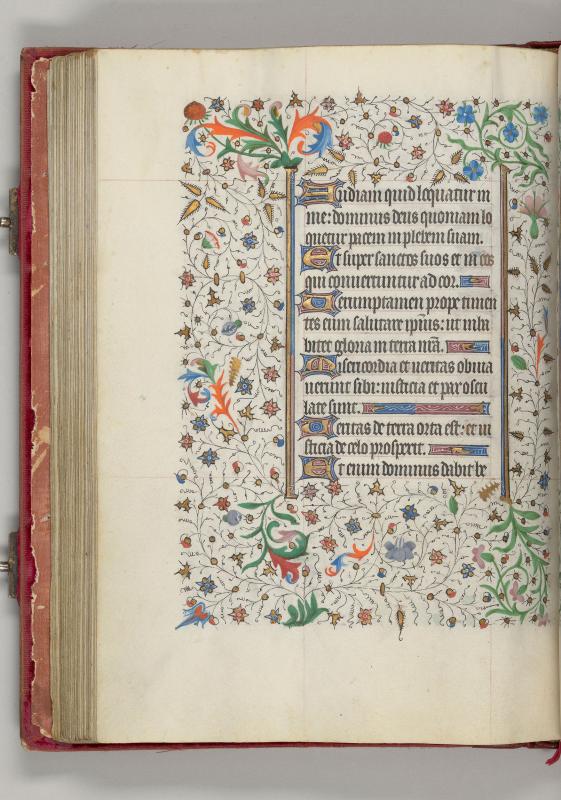 Audiam quid loquatur in
me: dominus deus quoniam lo
quetur pacem in plebem suam.
Et super sanctos suos et in eos
qui convertuntur ad cor.
Verumptamen prope timen
tes eum salutare ipsius: ut inha
bitet gloria in terra nr̄a.
Misericordia et veritas obvia
verunt sibi: iusticia et pax oscu
late sunt.
Veritas de terra orta est: et iu
sticia de celo prospexit.
Et enim dominus dabit be